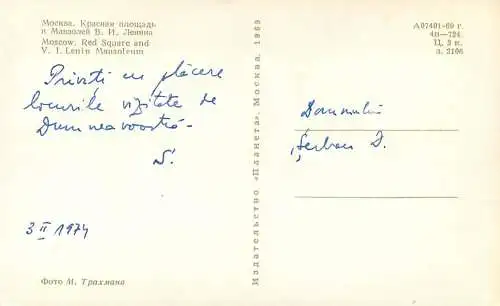 Москва. Красная площадь
и Мавзолей В. И. Ленина
Moscow. Red Square and
V. I. Lenin Mausoleum
Priviți cu plăcere
locurile vizitate de
Dumneavoastră-
S!
3 II 1974
Фото М. Трахмана
Издательство «Планета». Москва. 1969
А07401-69 г.
4н-724.
Ц. 3 к.
з. 2106
Domnului
Șerban D.